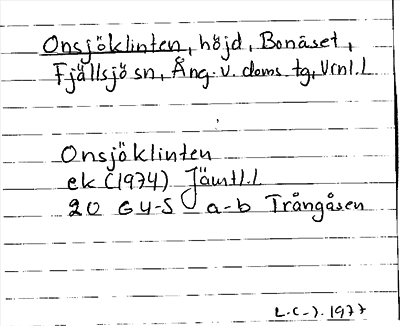 Onsjöklinten, höjd, Bonäset,
Fjällsjö sn, Ång. v. doms tg, Vrnl.l
Onsjöklinten
ek (1974) Jämtl.l
20 G 4-5 a-b Trångåsen
L.C-J. 1977